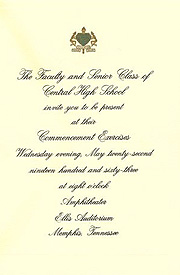 The Faculty and Senior Class of
Central High School
invite you to be present
at their
Commencement Exercises
Wednesday evening, May twenty-second
nineteen hundred and sixty-three
at eight o'clock
Amphitheater
Ellis Auditorium
Memphis, Tennessee